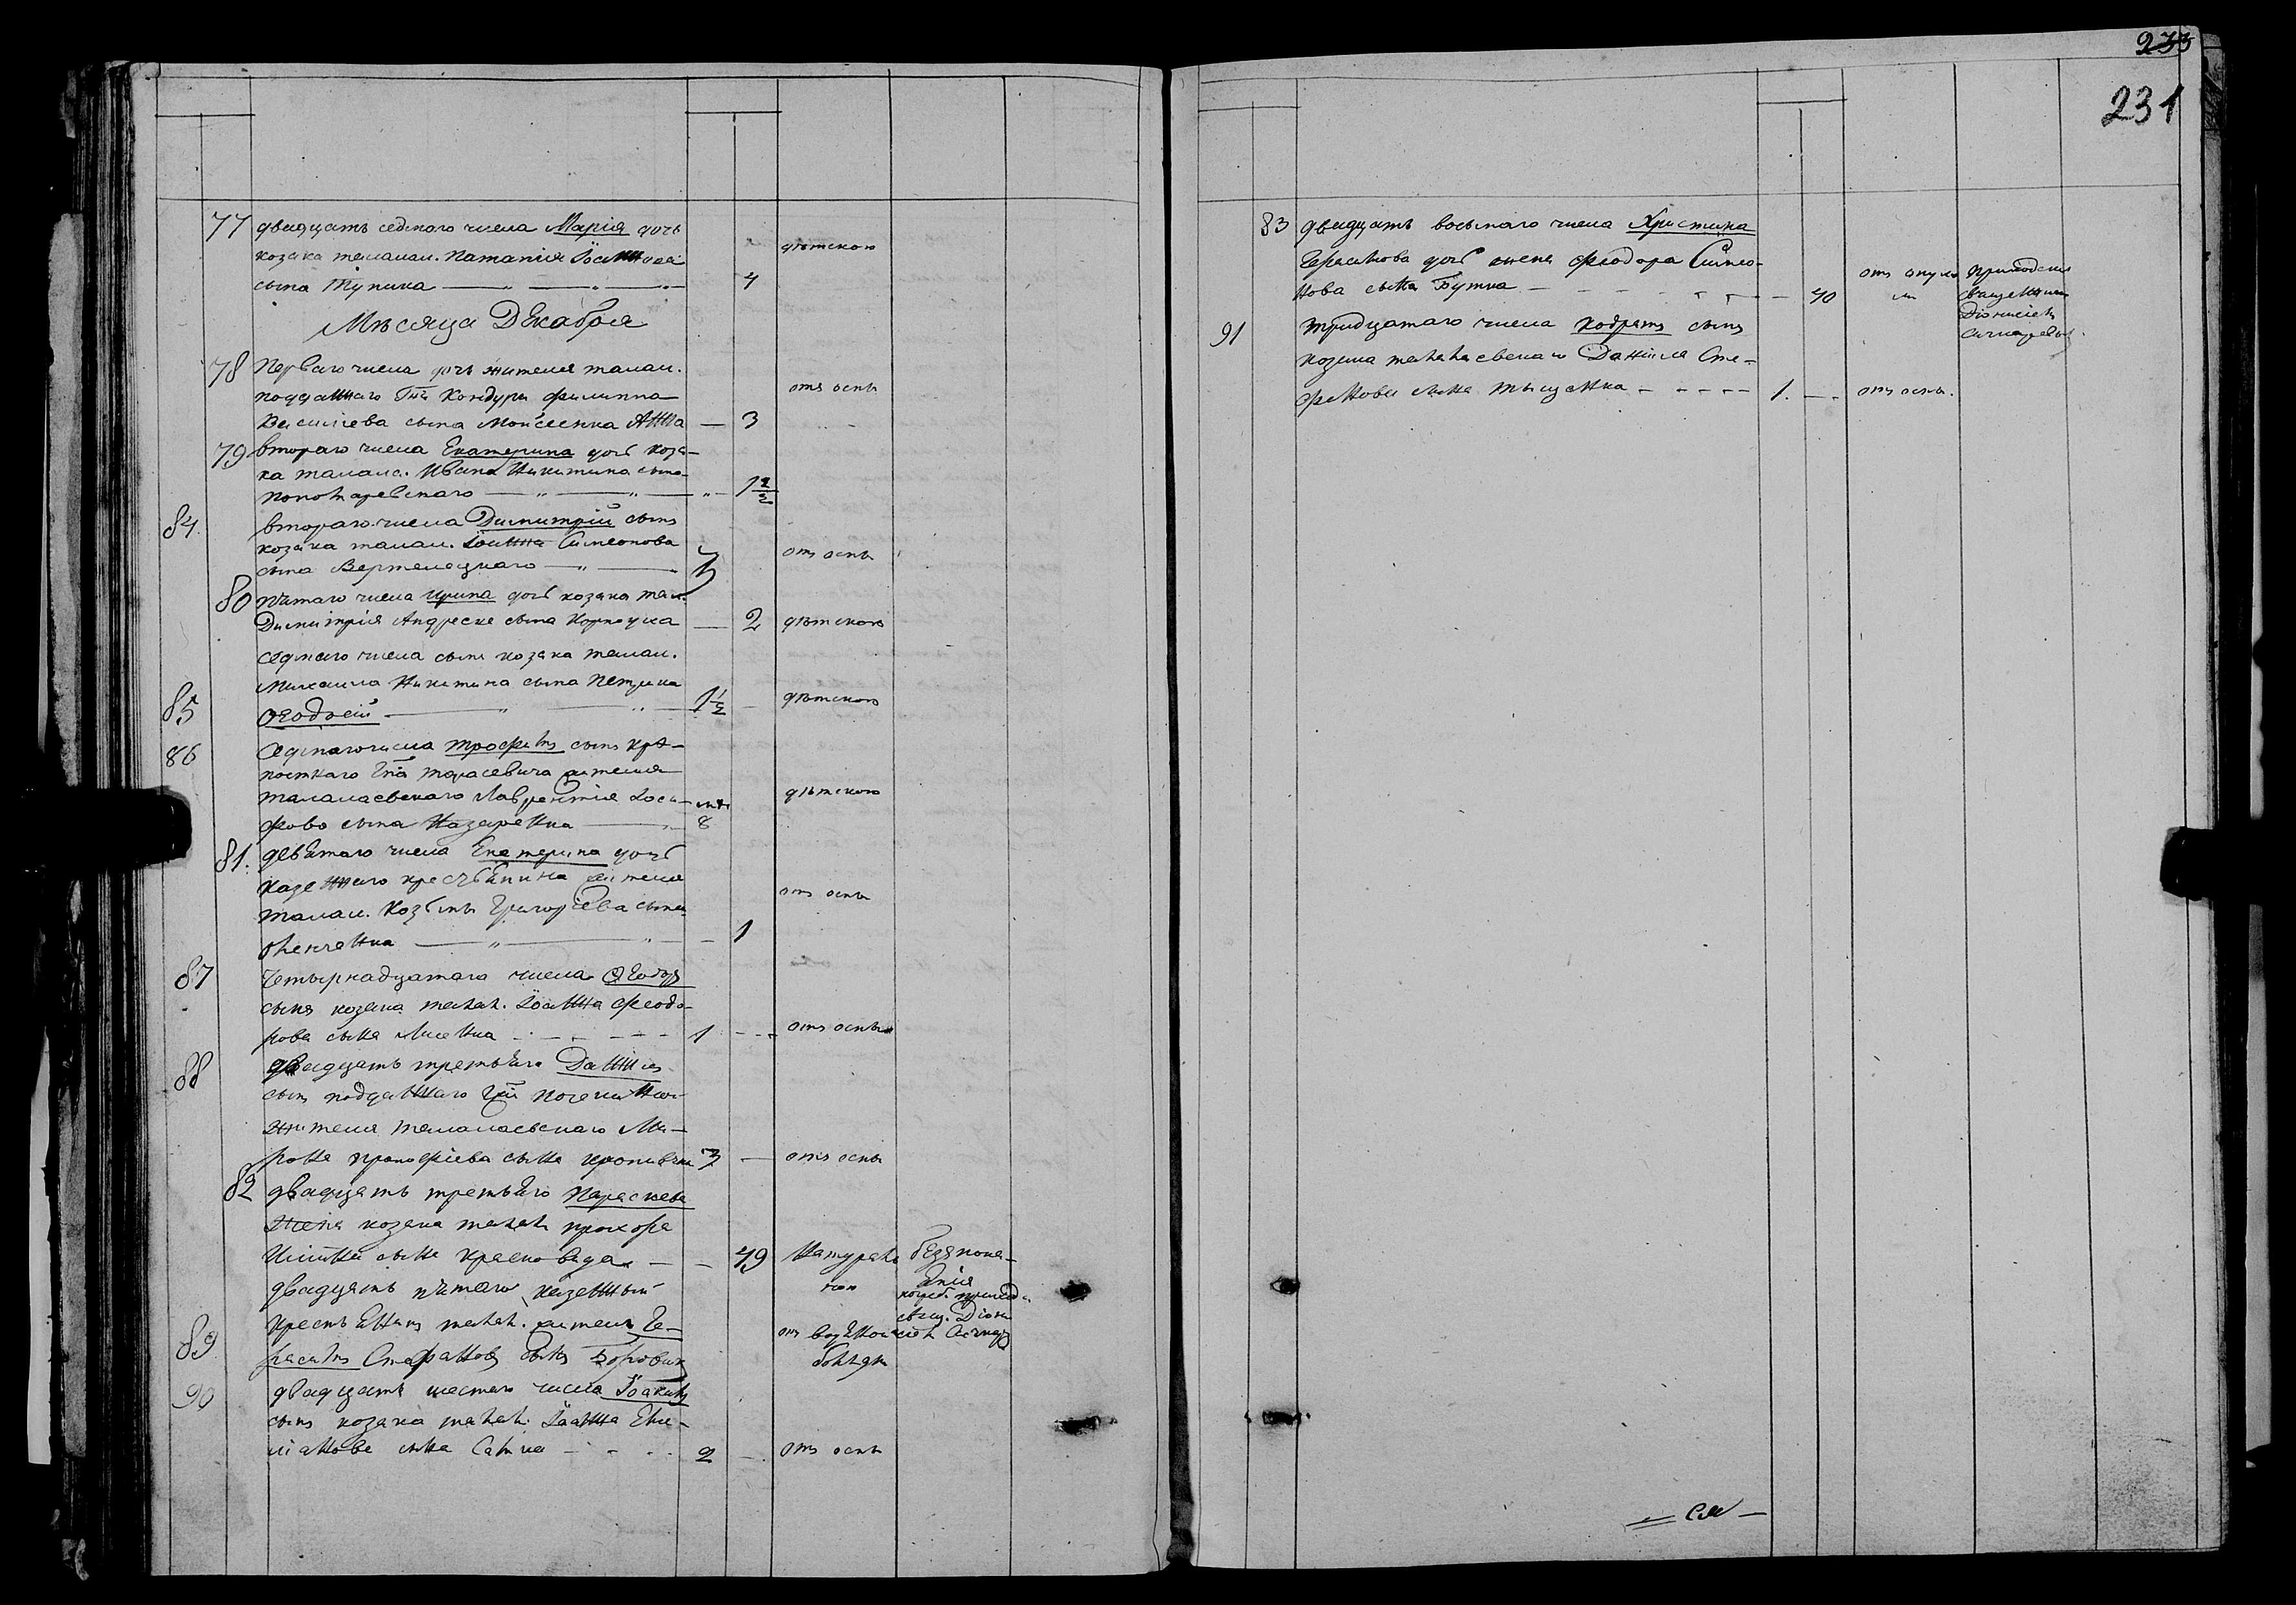 233
231
77 двадцать седмаго числа Марія дочь
козака талалаи. Потапія Іоаннова
сына Тупика — „ — „ — 4 дѣтскою
Мѣсяца Декабря
78 Перваго числа дочь жителя талал.
подданнаго Гпжи Кондури Филиппа
Василіева сына Мойсеенка Анна — 3 отъ оспы
79 втораго числа Екатерина дочь коза-
ка талала. Ивана Никитина сына
Понотаревскаго — „ — „ — „ — 1 1/2
84. втораго числа Димитрій сынъ
козака талал. Іоанна Симеонова
сына Вертелецкаго — „ — 3 отъ оспы
80 пятаго числа Ирина дочь козака тал.
Димитрія Андреева сына — 2 дѣтскою
седмаго числа сынъ козака талал.
Михаила Никитина сына Петрика
85 Ѳеодосій — „ — „ — 1 1/2 — дѣтскою
86 Седмаго числа Трофимъ сынъ крѣ-
постнаго Гпа Тарасевича жителя
талалаевскаго Лаврентія Іоси- мѣ дѣтскою
фова сына Назаренка — „ — 8
81. девятаго числа Екатерина дочь
казеннаго крестьянина жителя
талал. Козьмы Григоріева сына отъ оспы
— „ — „ — 1
87 Четырнадцатаго числа Ѳеодоръ
сынъ козака талал. Іоанна Феодо-
рова сына Лисенка - - - - - 1 - - - отъ оспы
88 двадцать третьяго Даніилъ
сынъ подданнаго Гжи
жителя талалаевскаго Ми-
рона Прокофіева сына 3 — отъ оспы
82 двадцать третьяго Параскева
жена козака талал Прохора
сына — - 49 натураль- безъ пока-
ною янія
двадцать пятаго казенный
погреб. приход.
свящ. Діони-
89 крестьянинъ талал. житель Ге- отъ водяной сіемъ
расимъ Стефановъ сынъ Боровикъ болѣзни
90 двадцать шестаго числа Іоакимъ
сынъ козака талал. Іоанна Еме-
ліанова сына - - - . 2 - . отъ оспы
83 двадцать восьмаго числа Христина
Герасимова дочь жена Феодора Симео-
нова сына Бутка - - - - - - — 40 отъ опухо-
ли
приходскимъ
священникомъ
Діонисіемъ
91 тридцатаго числа Кодратъ сынъ
козака талалаевскаго Даніила Сте-
фанова сына Тыщенка - - - - - 1. - - отъ оспы.